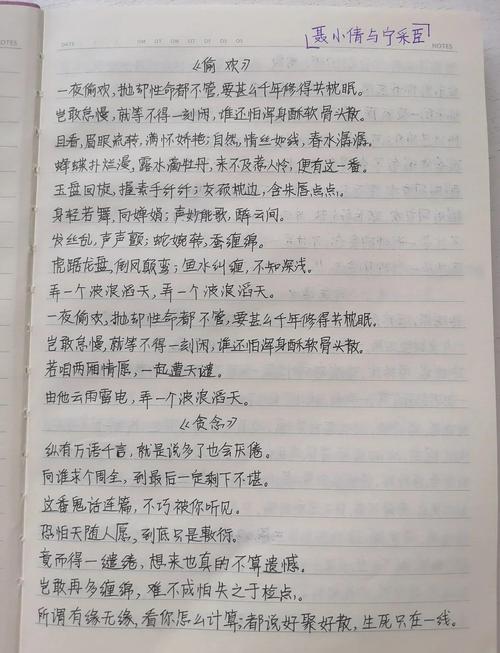 聂小倩与宁采臣
NOTES
DATE
NOTES
《偷欢》
一夜偷欢,抛却性命都不管,要甚么千年修得共枕眠。
岂敢怠慢,就等不得一刻闲,谁还怕浑身酥软骨头散。
且看,眉眼流转,满怀娇艳;自然,情丝如线,春水潺潺。
蜂蝶扑烂漫,露水滴牡丹,来不及惹人怜,便有这一番。
玉盘回旋,搵素手纤纤;衣衩枕边,含朱唇点点。
身轻若舞,同婵娟;声妙能歌,醉云间。
发丝乱,声声颤;蛇婉转,蚕缠绵。
虎踞龙盘,倒凤颠鸾;鱼水纠缠,不知深浅。
弄一个波浪滔天,弄一个波浪滔天。
一夜偷欢,抛却性命都不管,要甚么千年修得共枕眠。
岂敢怠慢,就等不得一刻闲,谁还怕浑身酥软骨头散。
若咱两厢情愿,一起遭天谴。
由他云雨雷电,弄一个波浪滔天。
《贪念》
纵有万语千言,就是说多了也会厌倦。
向谁求个周全,到最后一定剩下不堪。
这番鬼话连篇,不巧被你听见。
恐怕天随人愿,到底只是敷衍。
竟而得一缱绻,想来也真的不算遗憾。
岂敢再多缠绵,难不成怕失之于检点。
所谓有缘无缘,看你怎么计算;都说好聚好散,生死只在一线。